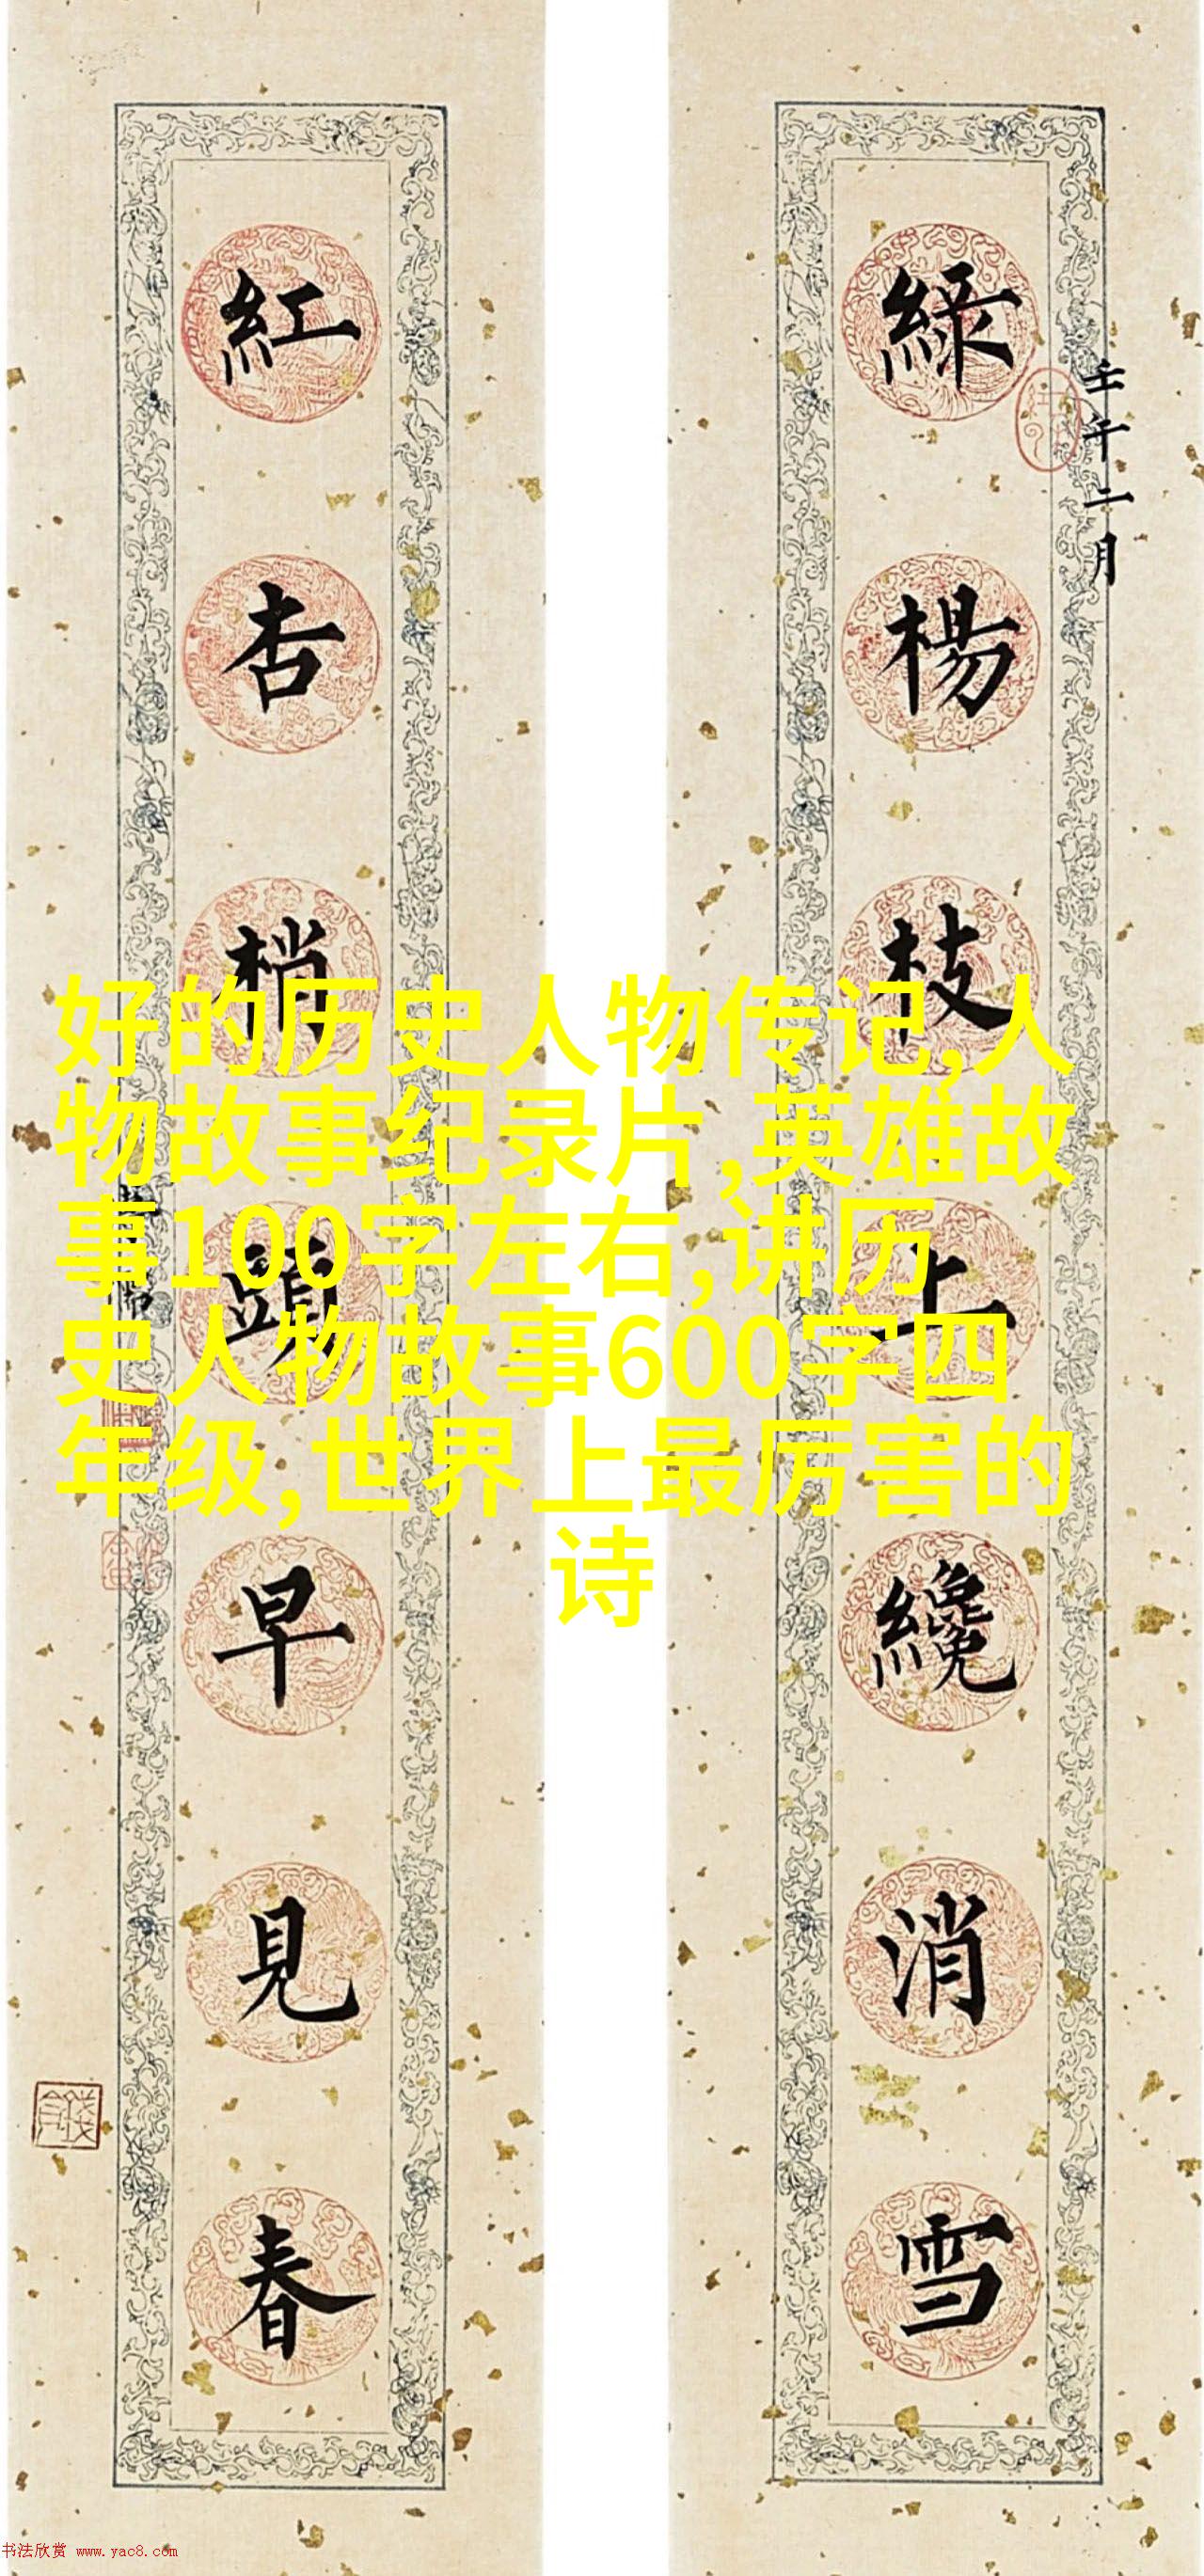 綠楊枝上纔消雪
壬午二月
紅杏梢頭早見春
好的历史人物传记,人
物故事纪录片,英雄故
事100字左右,讲历
史人物故事600字四
年级,世界上最厉害的
诗
书法欣赏 www.yac8.com